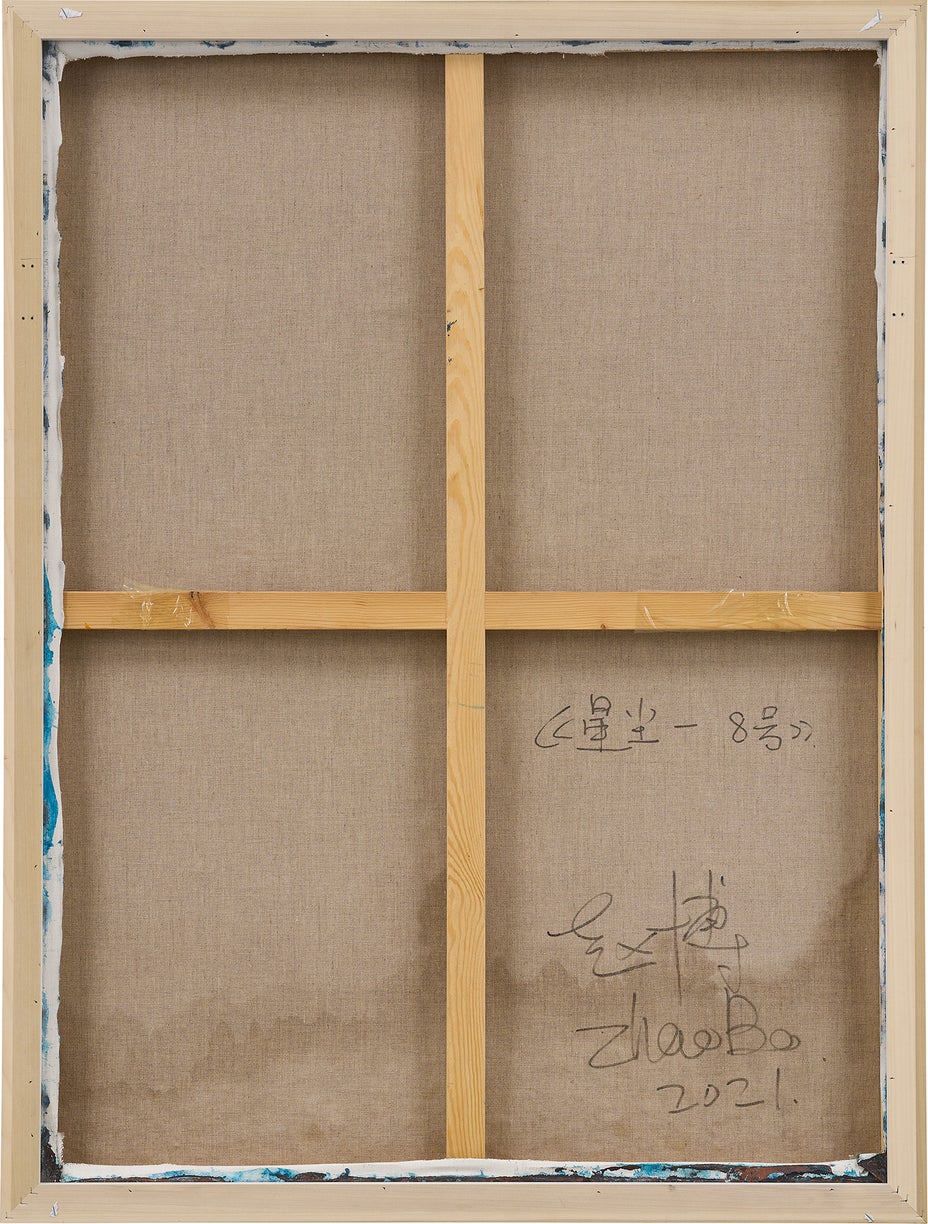 《星尘一 8号》
赵博
ZhaoBo
2021.